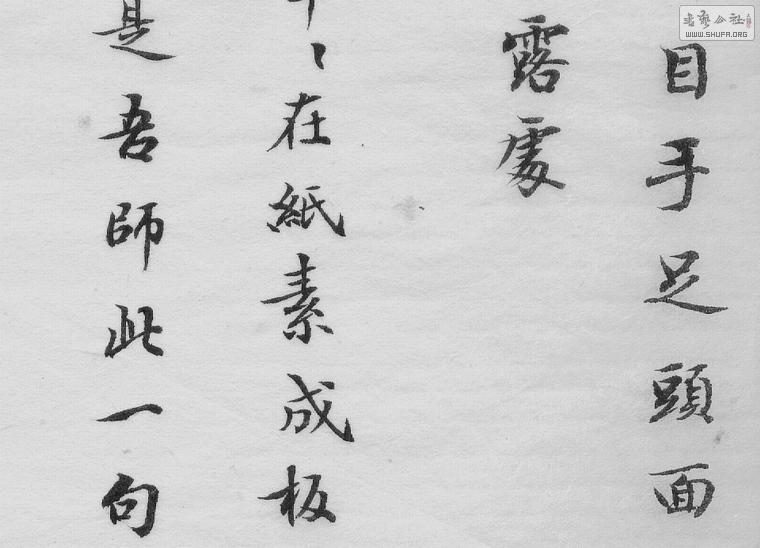 目手足頭面
露處
在紙素成板
是吾師此一句
書藝公社
WWW.SHUFA.ORG